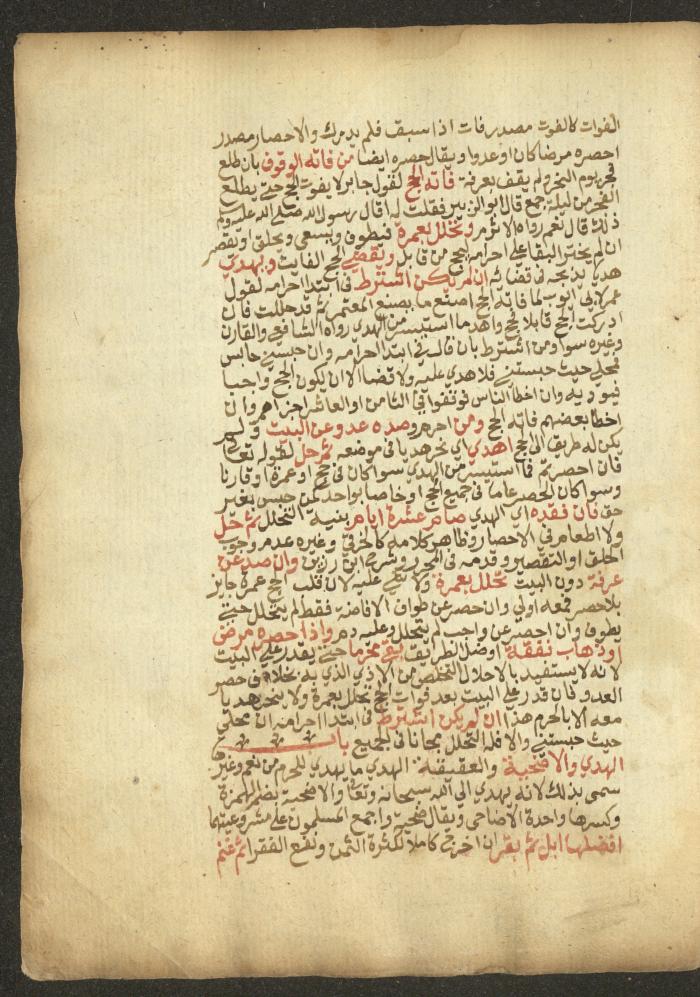 الفوات كالفوت مصدر فات اذا سبق فلم يدرك والاحصار مصدر
احصره مرضا كان او عدوا ويقال حصره ايضا من فاته الوقوف بان طلع
فجر يوم النحر ولم يقف بعرفة فاته الحج لقول جابر لا يفوت الحج حتى يطلع
الفجر من ليلة جمع قال ابو الزبير فقلت له اقال رسول الله صلى الله عليه وسلم
ذلك قال نعم رواه الاثرم وتحلل بعمرة فيطوف ويسعى ويحلق او يقصر
ان لم يختر البقا على احرامه ليحج من قابل ويقضي الحج الفايت ويهدي
هديا يذبحه في قضائه ان لم يكن اشترط في ابتدا احرامه لقول
عمر لابي ايوب لما فاته الحج اصنع ما يصنع المعتمر ثم قد حللت فان
ادركت الحج قابلا فحج واهد ما استيسر من الهدي رواه الشافعي والقارن
وغيره سوا ومن اشترط بان قال في ابتدا احرامه وان حبسني حابس
فمحلي حيث حبستني فلا هدي عليه ولا قضا الا ان يكون الحج واجبا
فيوديه وان اخطا الناس فوقفوا في الثامن او العاشر اجزاهم وان
اخطا بعضهم فاته الحج ومن احرم وصده عدو عن البيت ولم
يكن له طريق الى الحج اهدي اي نحر هديا في موضعه ثم حل لقوله تعالى
فان احصرتم فما استيسر من الهدي سوا كان في حج او عمرة او قارنا
وسوا كان الحصر عاما في جميع الحج او خاصا بواحد كمن حبس بغير
حق فان فقده اي الهدي صام عشرة ايام بنية التحلل ثم حل
ولا اطعام في الاحصار وظاهر كلامه كالخرقي وغيره عدم وجوب
الحلق او التقصير وقدمه في المحرر وشرح ابن رزين وان صد عن
عرفة دون البيت تحلل بعمرة ولا شي عليه لان قلب الحج عمرة جايز
بلا حصر فمعه اولى وان حصر عن طواف الافاضة فقط لم يتحلل حتى
يطوف وان احصر عن واجب لم يتحلل وعليه دم واذا حصره مرض
او ذهاب نفقة او ضل الطريق بقي محرما حتى يقدر على البيت
لانه لا يستفيد بالاحلال التخلص من الاذى الذي به بخلاف حصر
العدو فان قدر على البيت بعد فوات الحج تحلل بعمرة ولا ينحر هديا
معه الا بالحرم هذا ان لم يكن اشترط في ابتدا احرامه ان محلي
حيث حبستني والا فله التحلل مجانا في الجميع باب
الهدي والاضحية والعقيقة الهدي ما يهدى للحرم من نعم وغيرها
سمي بذلك لانه يهدى الى الله سبحانه وتعالى والاضحية بضم الهمزة
وكسرها واحدة الاضاحي ويقال ضحية واجمع المسلمون على مشروعيتها
افضلها ابل ثم بقر ان اخرج كاملا لكثرة الثمن ونفع الفقرا ثم غنم